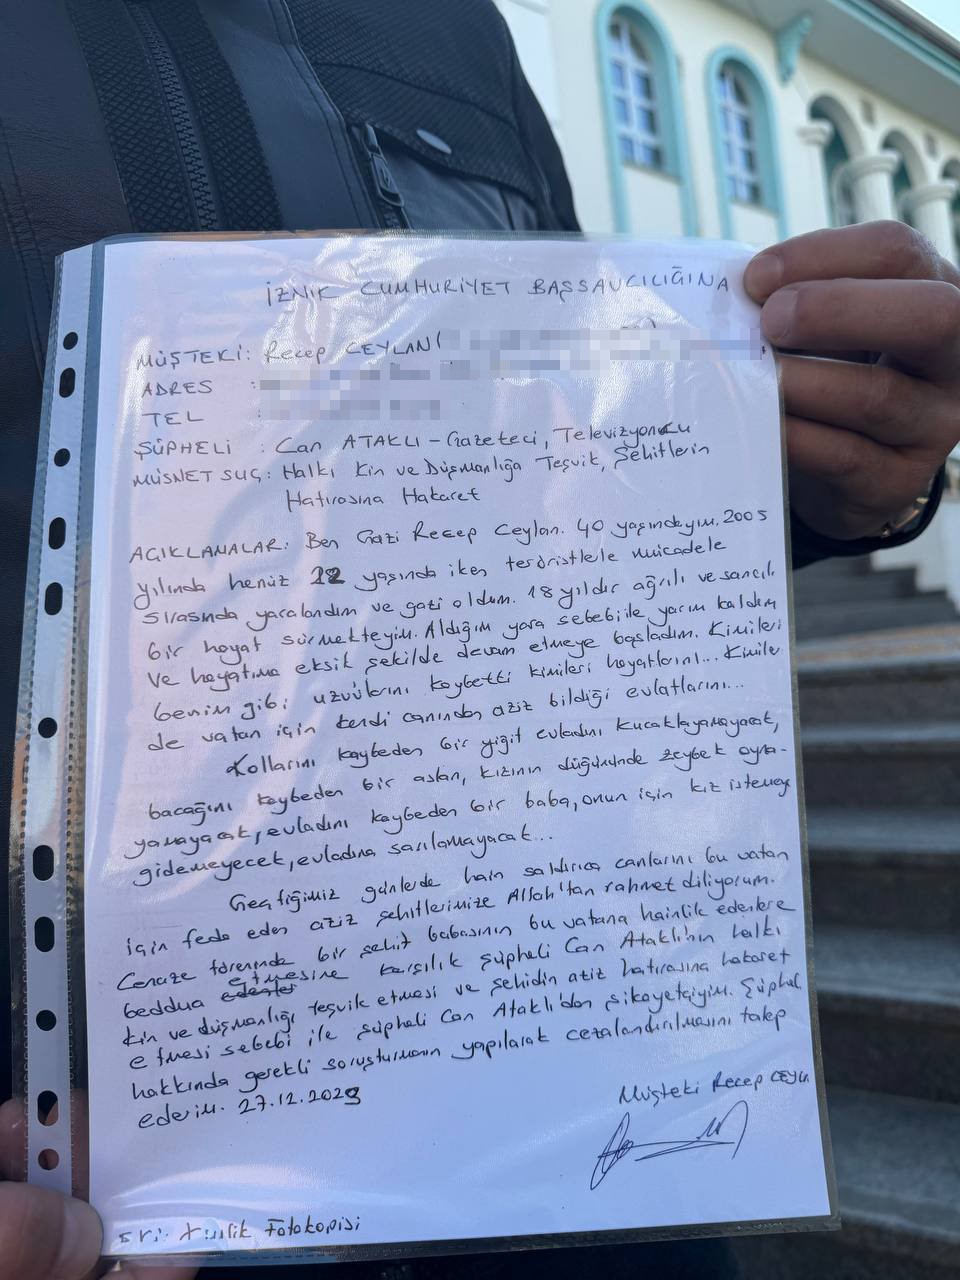 İZNİK CUMHURİYET BAŞSAVCILIĞINA
MÜŞTEKİ: Recep CEYLAN(
ADRES :
TEL :
ŞÜPHELİ : Can ATAKLI-Gazeteci, Televizyoncu
MÜSNET SUÇ: Halkı Kin ve Düşmanlığa Teşvik, Şehitlerin
Hatırasına Hakaret
AÇIKLAMALAR: Ben Gazi Recep Ceylan. 40 yaşındayım. 2005
yılında henüz 22 yaşında iken teröristlerle mücadele
sırasında yaralandım ve gazi oldum. 18 yıldır ağrılı ve sancılı
bir hayat sürmekteyim. Aldığım yara sebebi ile yarım kaldım
ve hayatıma eksik şekilde devam etmeye başladım. Kimileri
benim gibi uzuvlarını kaybetti kimileri hayatlarını... Kimile
de vatan için kendi canından aziz bildiği evlatlarını...
Kollarını kaybeden bir yiğit evladını kucaklayamayacak,
bacağını kaybeden bir aslan, kızının düğününde zeybek oyna-
yamayacak, evladını kaybeden bir baba, onun için kız istemey
gidemeyecek, evladına sarılamayacak...
Geçtiğimiz günlerde hain saldırıca canlarını bu vatan
için feda eden aziz şehitlerimize Allah'tan rahmet diliyorum.
Cenaze töreninde bir şehit babasının bu vatana hainlik edenlere
beddua edenler etmesine karşılık şüpheli Can Ataklı'nın halkı
kin ve düşmanlığı teşvik etmesi ve şehidin aziz hatırasına hakaret
etmesi sebebi ile şüpheli Can Ataklı'dan şikayetçiyim. Şüphel
hakkında gerekli soruşturmanın yapılarak cezalandırılmasını talep
ederim. 27.12.2023
Müşteki Recep CEYLN
Kimlik Fotokopisi